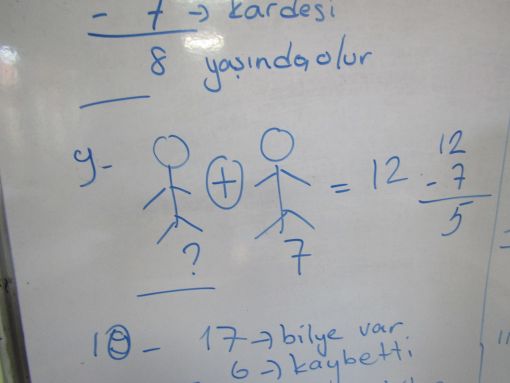 - 7 → kardeşi
8 yaşında olur
9-
+ = 12
12
- 7
5
? 7
10 - 17 → bilye var
6 → kaybetti